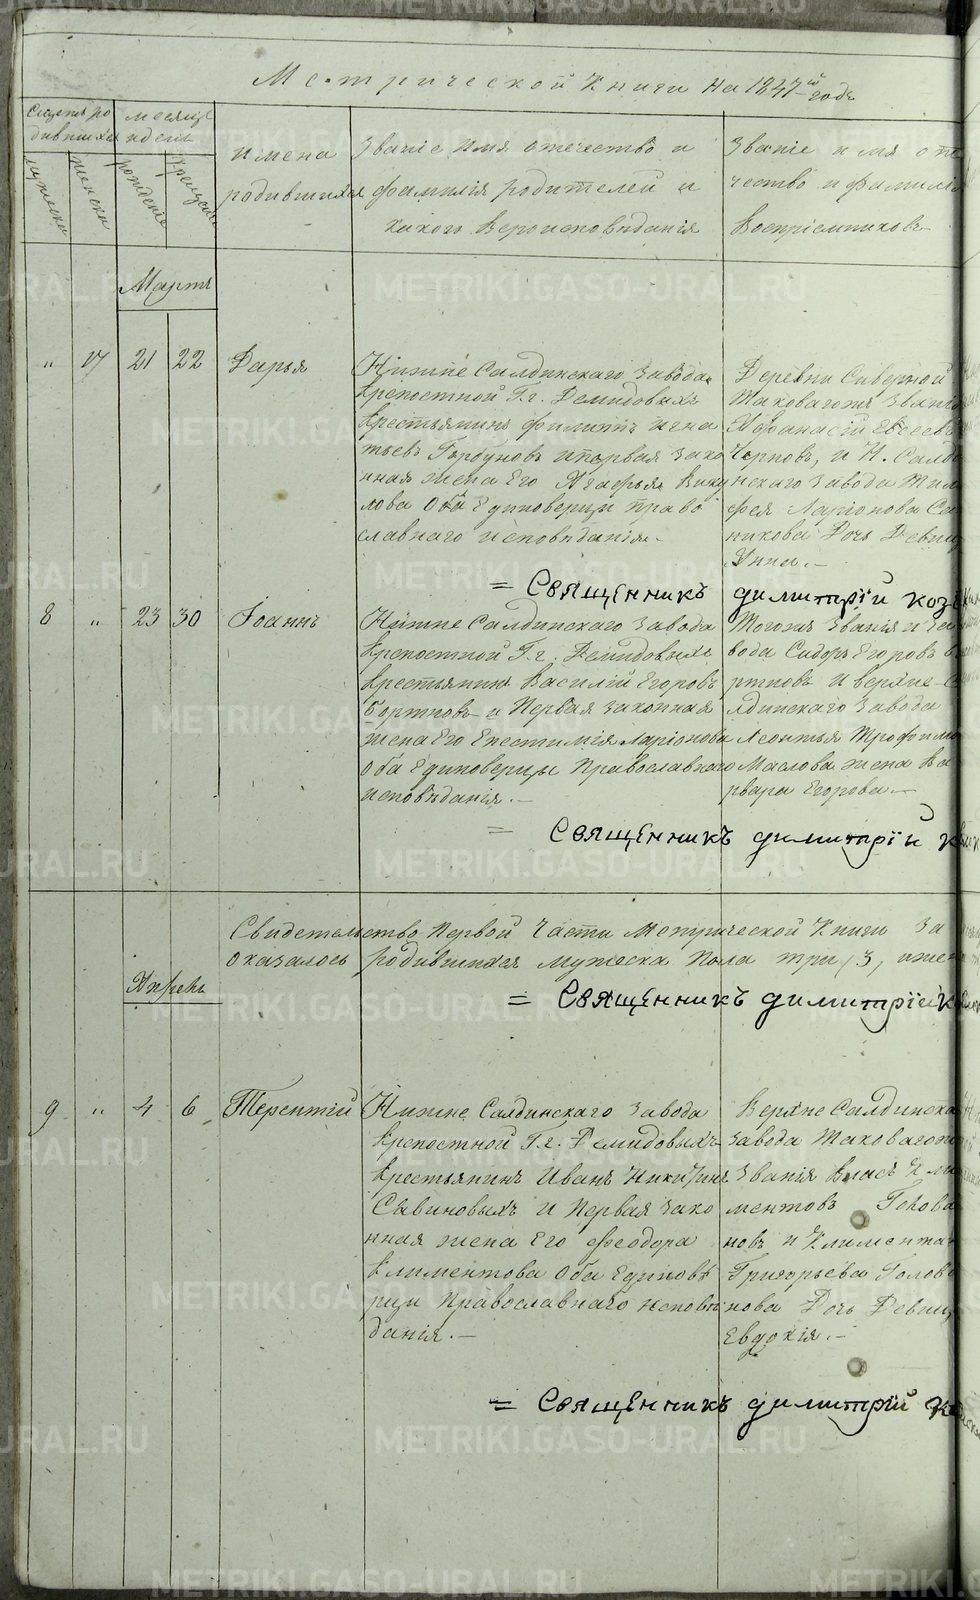 Метрической Книги на 1847й годъ
Счетъ ро
дившихся
мужеска
женска
месяцъ
и день
рожденіе
крещеніе
имена
родившихся
Званіе имя отечество и
фамилія родителей и
какого вероисповѣданія
Званіе имя оте
чество и фамилія
Воспріемниковъ
Мартъ
" 17 21 22 Дарья
Нижне Салдинскаго Завода
крепостной Г.г. Демидовыхъ
крестьянинъ Филиппъ Игна
тьевъ Горбуновъ и первая зако
нная жена Его Агафья Вику
лова Оба Единоверцы право
славнаго исповѣданія.
Деревни Северной
Таковагожъ Званія
Афанасій Евсеевъ
Черновъ, и Н. Салди
нскаго Завода Тим
фея Ларіонова Са
никова Дочь Девица
Анна.
= Священникъ димитрій коз
8 " 23 30 Іоаннъ
Нижне Салдинскаго Завода
крепостной Г.г. Демидовыхъ
крестьянинъ Василій Егоровъ
Бортновъ и Первая законная
жена Его Епестимія Ларіонова
Оба Единоверцы Православнаго
исповѣданія.
Тогожъ Званія и За
вода Сидоръ Егоровъ Бо
ртновъ и Верхне Са
лдинскаго Завода
Леонтья Трофимо
Маслова жена Ва
рвара Егорова
= Священникъ димитрій к
Свидетельство Первой Части Метрической Книги За
оказалось родившихся мужеска Пола три, 3, жен
= Священникъ димитрій к
Апрель
9 " 4 6 Терентій
Нижне Салдинскаго Завода
крепостной Г.г. Демидовыхъ
Крестьянинъ Иванъ Никитинъ
Савиновыхъ и Первая Зако
нная жена Его Феодора
Климентова Оба Единовѣ
рцы Православнаго исповѣ
данія.
Верхне Салдинска
Завода Таковагожъ
Званія Власъ Кли
ментовъ Голова
новъ и Климента
Григорьева Голова
нова Дочь Девица
Евдокія.
= Священникъ димитрій ко
METRIKI.GASO-URAL.RU